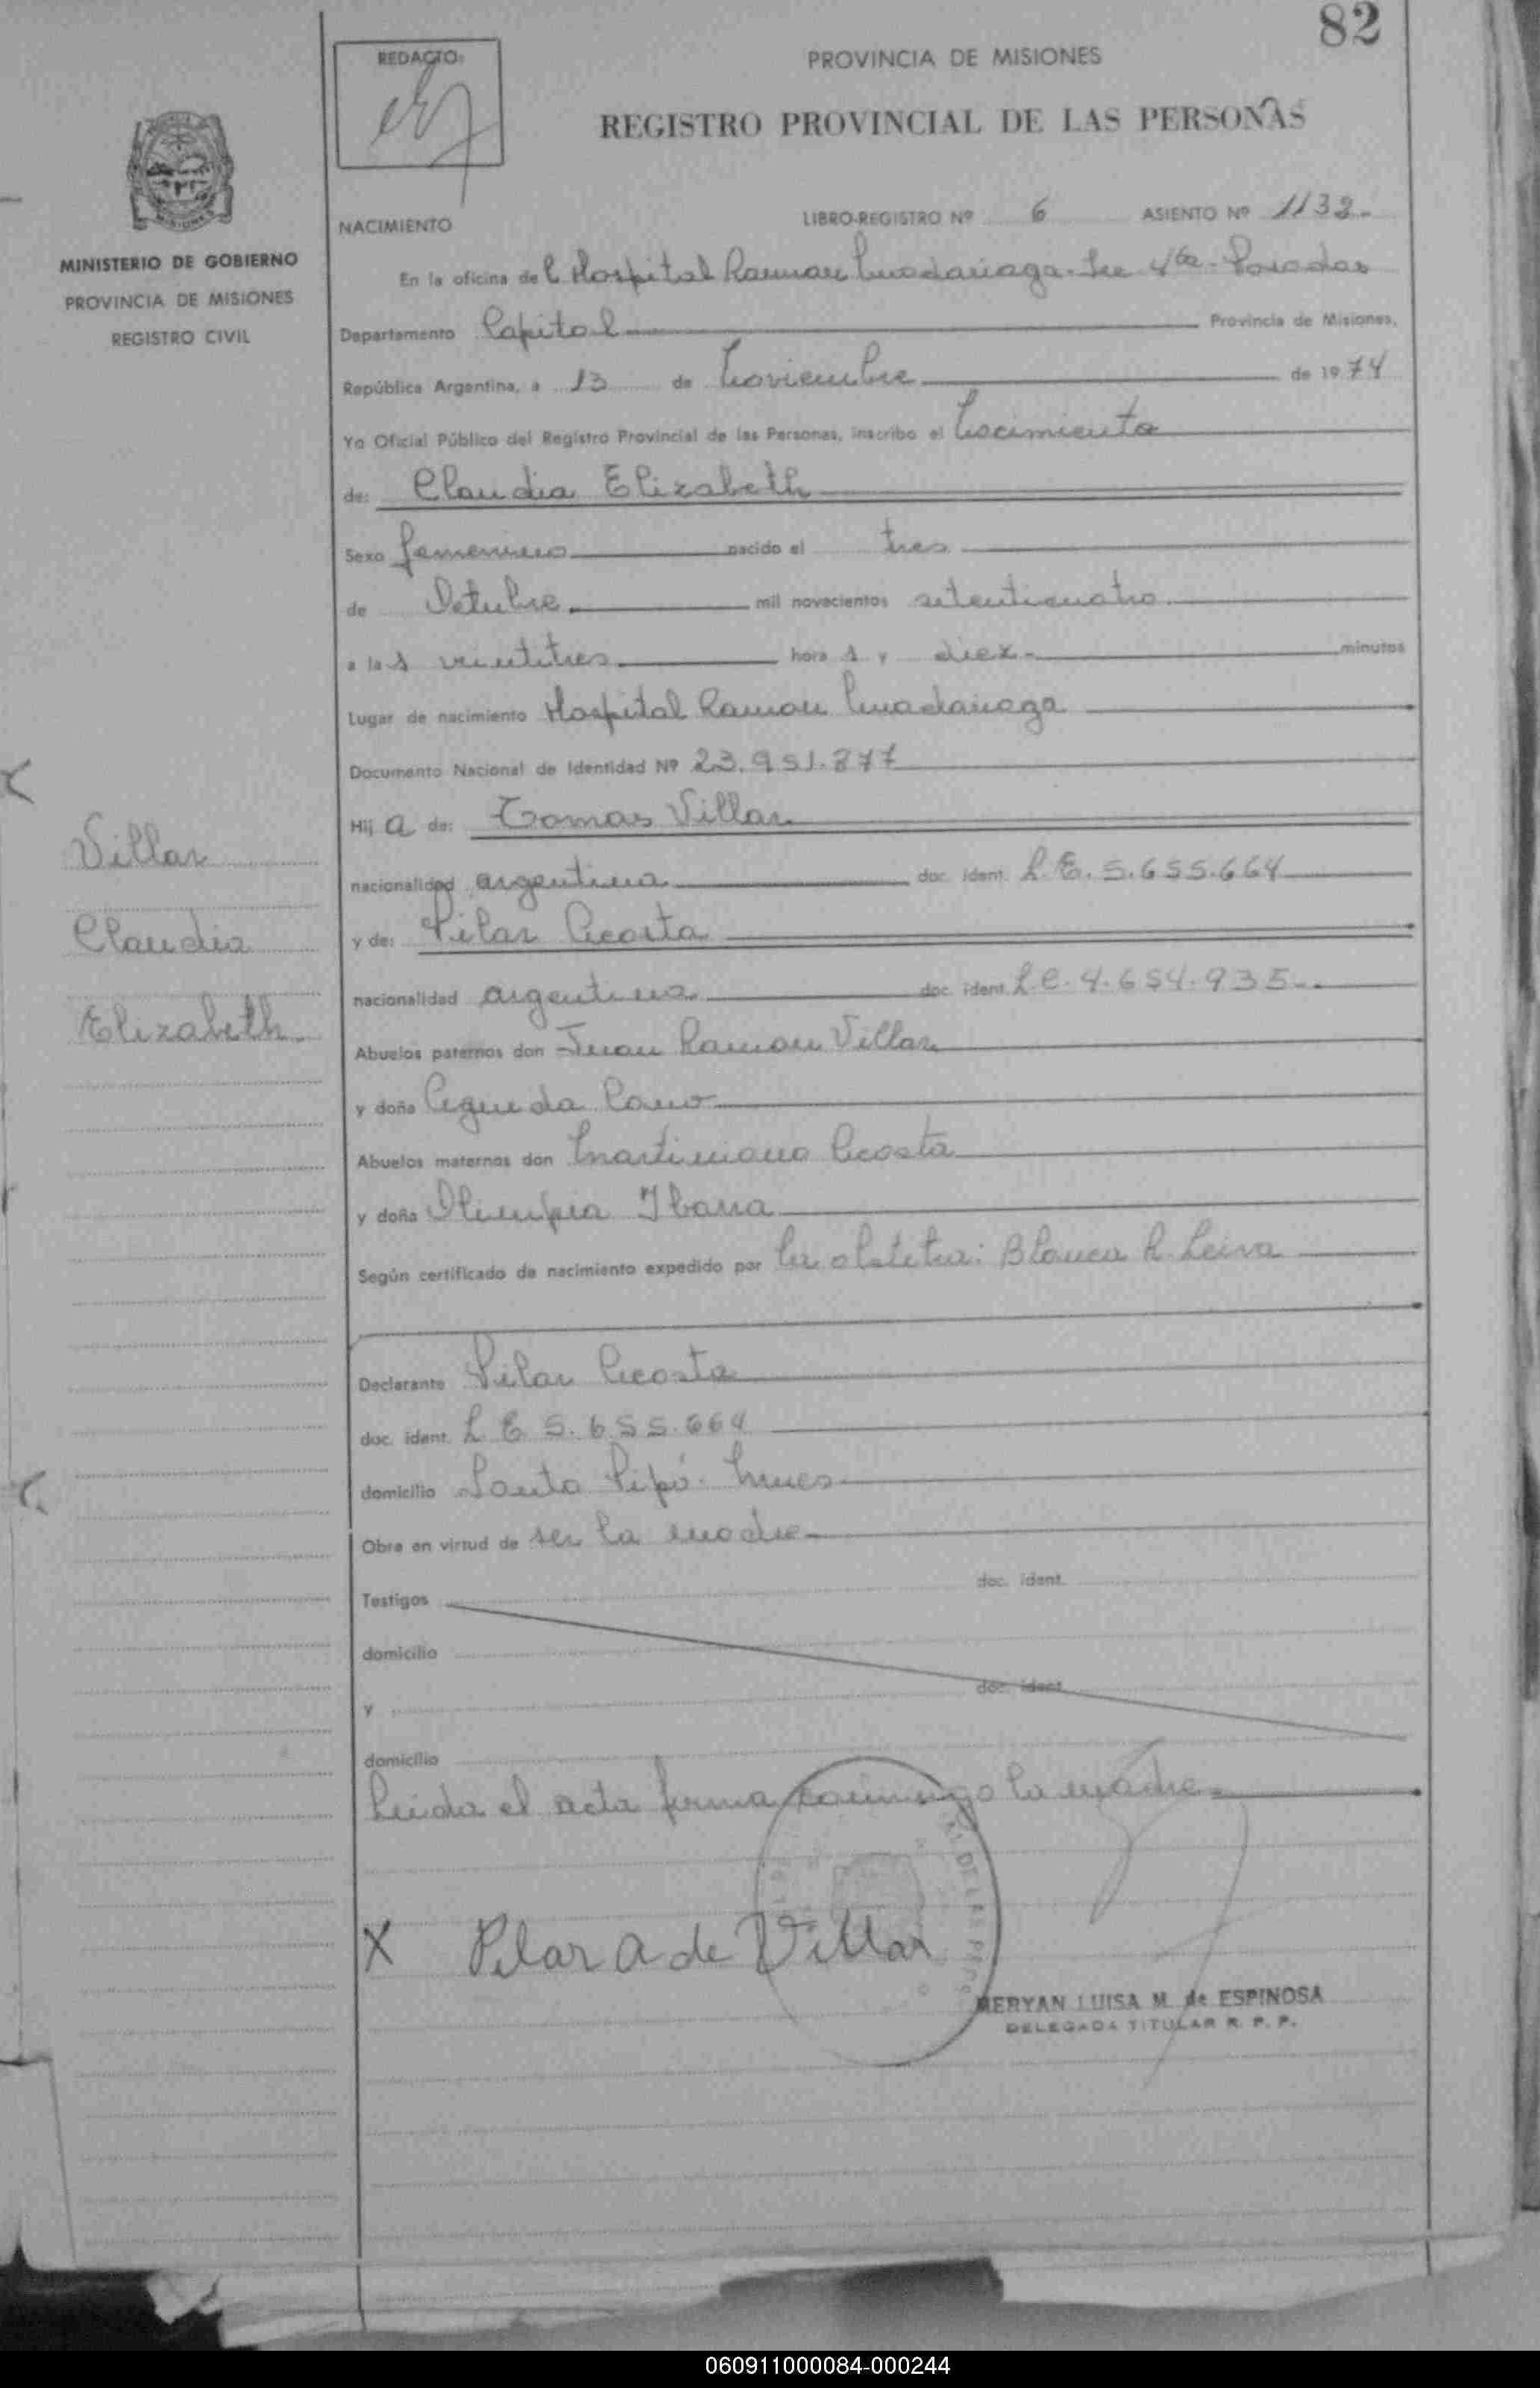 82
REDACTO:
PROVINCIA DE MISIONES
REGISTRO PROVINCIAL DE LAS PERSONAS
MINISTERIO DE GOBIERNO
PROVINCIA DE MISIONES
REGISTRO CIVIL
NACIMIENTO LIBRO-REGISTRO Nº 6 ASIENTO Nº 1132.
En la oficina del Hospital Ramon Madariaga. Sec 4ta. Posadas
Departamento Capital Provincia de Misiones,
República Argentina, a 13 de Noviembre de 1974
Yo Oficial Público del Registro Provincial de las Personas, inscribo el Nacimiento
de: Claudia Elizabeth
Sexo femenino nacido el tres
de Octubre mil novecientos setenticuatro
a las veintitres horas y diez minutos
Lugar de nacimiento Hospital Ramon Madariaga
Documento Nacional de Identidad Nº 23.951.877
Hija de: Tomas Villar
nacionalidad argentina doc. ident. L.E. 5.655.664
y de: Pilar Acosta
nacionalidad argentina doc. ident. L.C. 4.654.935
Abuelos paternos don Juan Ramon Villar
y doña Agueda Cano
Abuelos maternos don Martiniano Acosta
y doña Olimpia Ibarra
Según certificado de nacimiento expedido por la obstetra: Blanca R. Leiva
Villar
Claudia
Elizabeth
Declarante Pilar Acosta
doc. ident. L E 5.655.664
domicilio Santo Pipó. Mnes
Obra en virtud de ser la madre
Testigos doc. ident.
domicilio
y doc. ident.
domicilio
Leida el acta firma conmigo la madre
X Pilar A de Villar
MERYAN LUISA M. de ESPINOSA
DELEGADA TITULAR R. P. P.
060911000084-000244